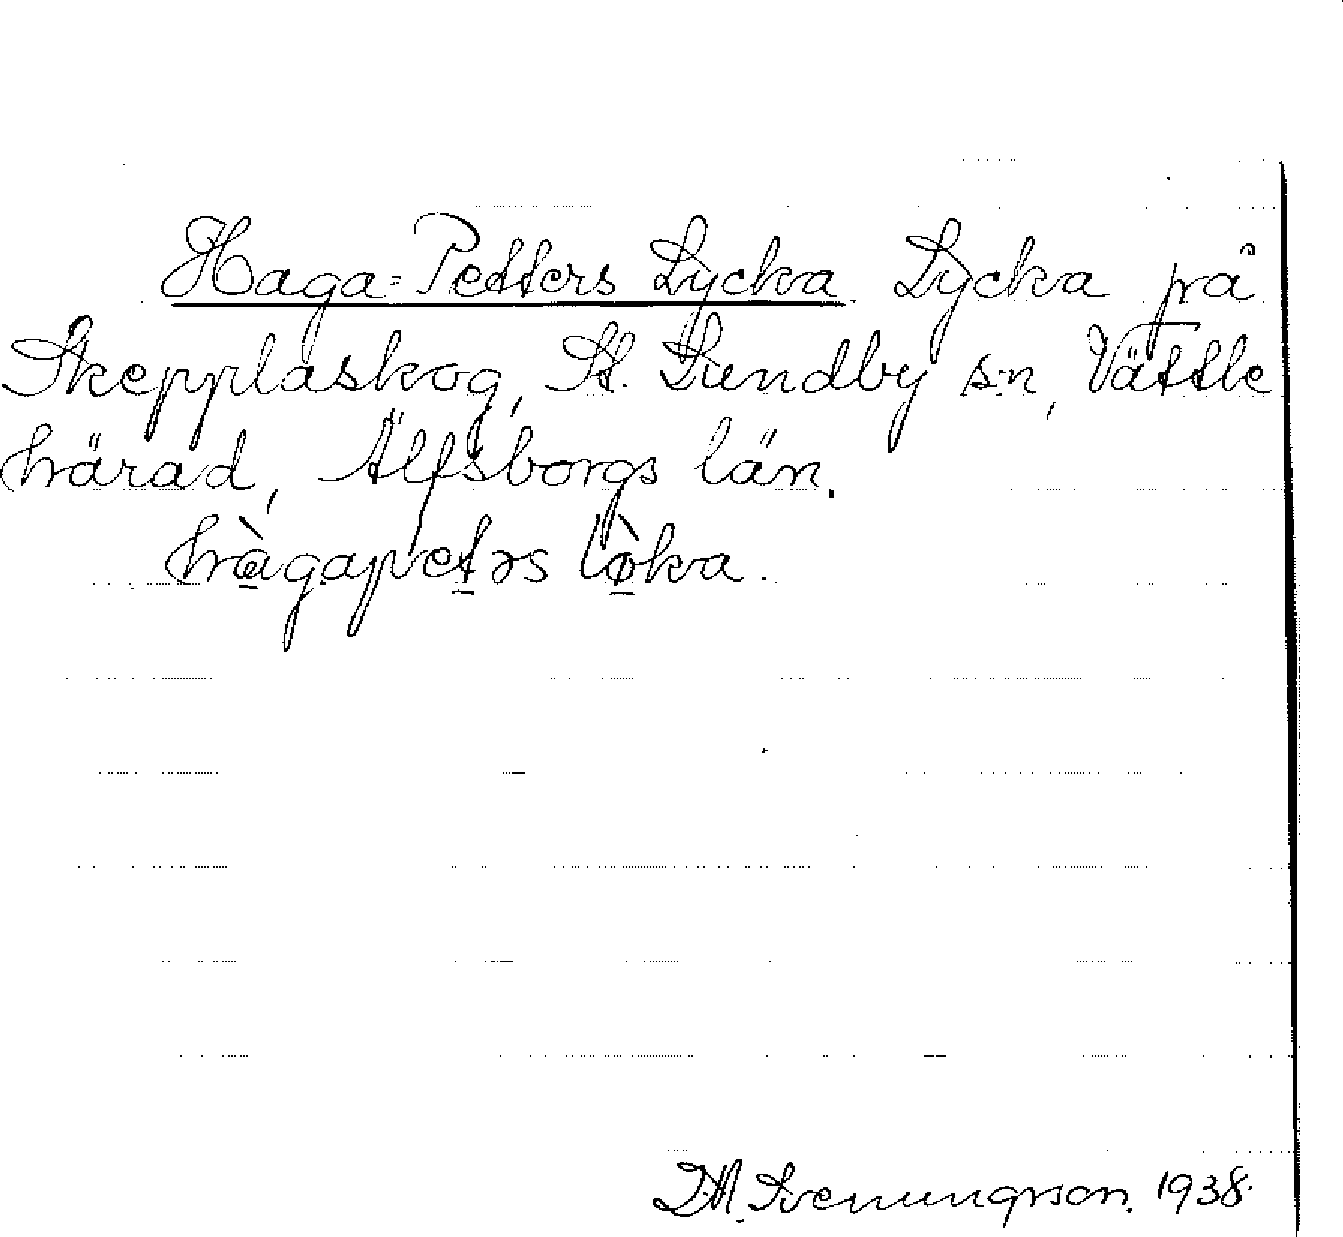 Haga-Petters Lycka Lycka på
Skepplaskog, St. Lundby s:n, Vättle
härad, Älfsborgs län.
hàgapetərs lø̀ka.
D.M. Svenungsson. 1938.